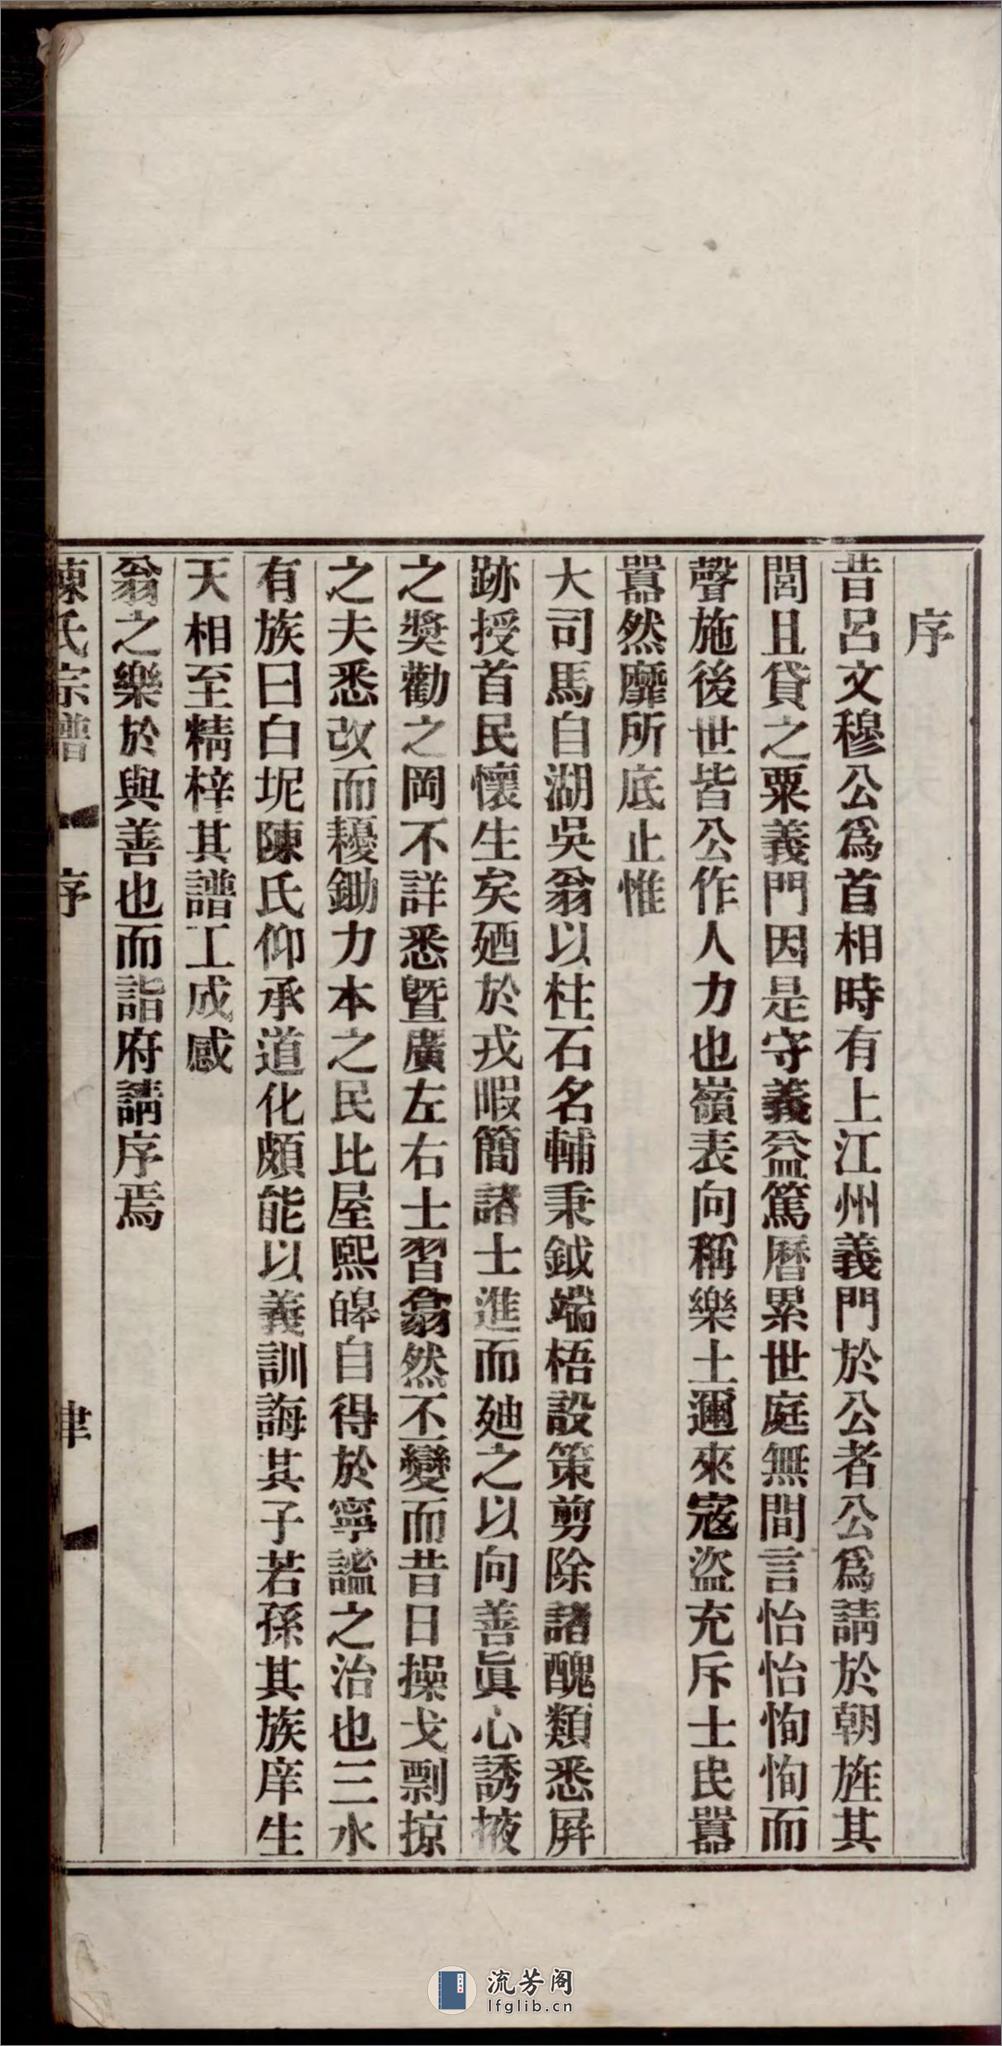 序
昔呂文穆公爲首相時有上江州義門於公者公爲請於朝旌其
閭且貸之粟義門因是守義益篤曆累世庭無間言怡怡恂恂而
聲施後世皆公作人力也嶺表向稱樂土邇來寇盜充斥士民囂
囂然靡所底止惟
大司馬自湖吳翁以柱石名輔秉鉞端梧設策剪除諸醜類悉屏
跡授首民懷生矣廼於戎暇簡諸士進而廸之以向善眞心誘掖
之獎勸之罔不詳悉曁廣左右士習翕然丕變而昔日操戈剽掠
之夫悉改而耰鋤力本之民比屋熙皞自得於寧謐之治也三水
有族曰白坭陳氏仰承道化頗能以義訓誨其子若孫其族庠生
天相至精梓其譜工成感
翁之樂於與善也而詣府請序焉
陳氏宗譜 序 律
流芳阁
lfglib.cn